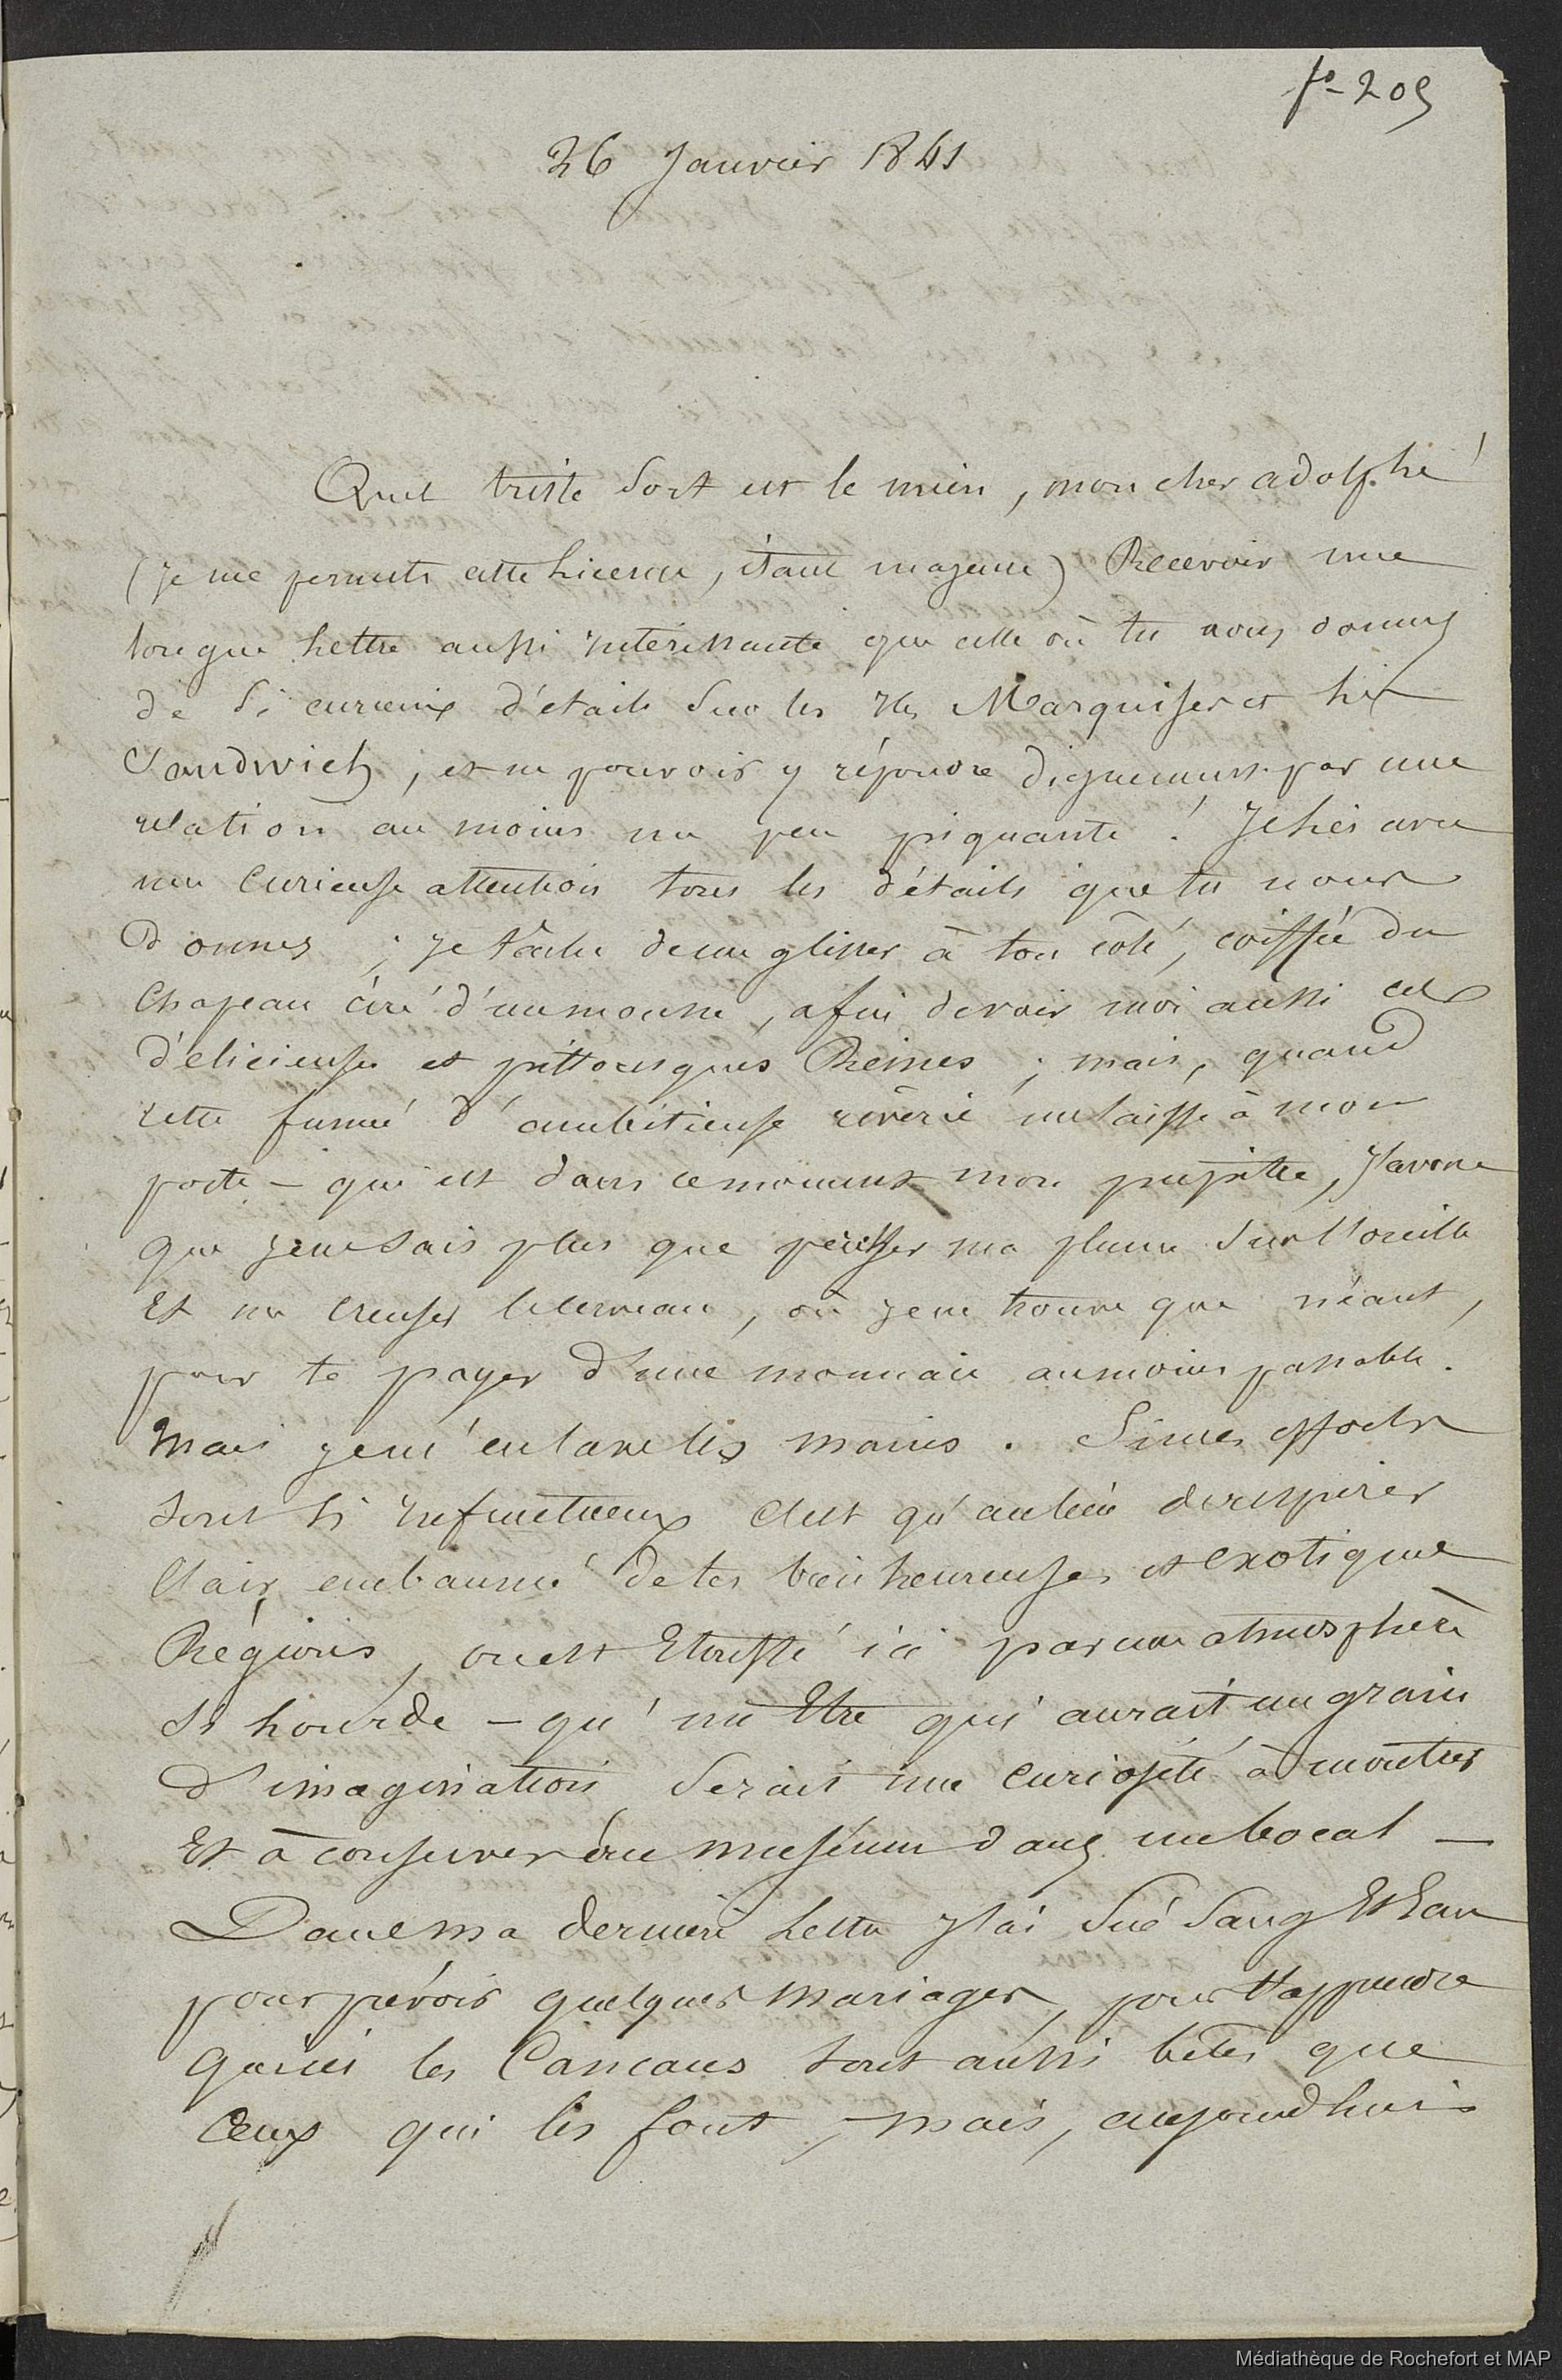 fo 209
26 Janvier 1841
Quel triste Sort est le mien, mon cher adolphe!
(je me permets cette Licence, étant majeure) Recevoir une
longue Lettre aussi intéressante que celle où tu nous donnes
de Si curieux détails Sur les Iles Marquises et les
Sandwich, et ne pouvoir y répondre dignement par une
relation au moins un peu piquante! Je lis avec
une Curieuse attention tous les détails que tu nous
Donnes ; je tâche de me glisser à ton côté, coiffée du
Chapeau ciré d'un mousse, afin de voir moi aussi ces
délicieuses et pittoresques Reines ; mais, quand
cette fumée d'ambitieuse rêverie me laisse à mon
poste – qui est dans ce moment mon pupitre, J'avoue
que je ne sais plus que pencher ma plume Sur l'oreille
Et me creuser le cerveau, où je ne trouve que néant,
pour te payer d'une monnaie au moins passable.
Mais je m'en lave les mains. Si mes efforts
sont si infructueux C'est qu'au lieu de respirer
l'air embaumé de tes bienheureuses et exotiques
Régions, on est Etouffé ici par une atmosphère
Si lourde – qu'un Etre qui aurait un grain
d'imagination Serait une Curiosité à montrer
Et à conserver au muséum dans un bocal –
Dans ma dernière Lettre J'ai Sué Sang Et Eau
pour prévoir quelques Mariages, pour t'apprendre
qu'ici les Cancans sont aussi bêtes que
Ceux qui les font, mais, aujourdhui
Médiathèque de Rochefort et MAP